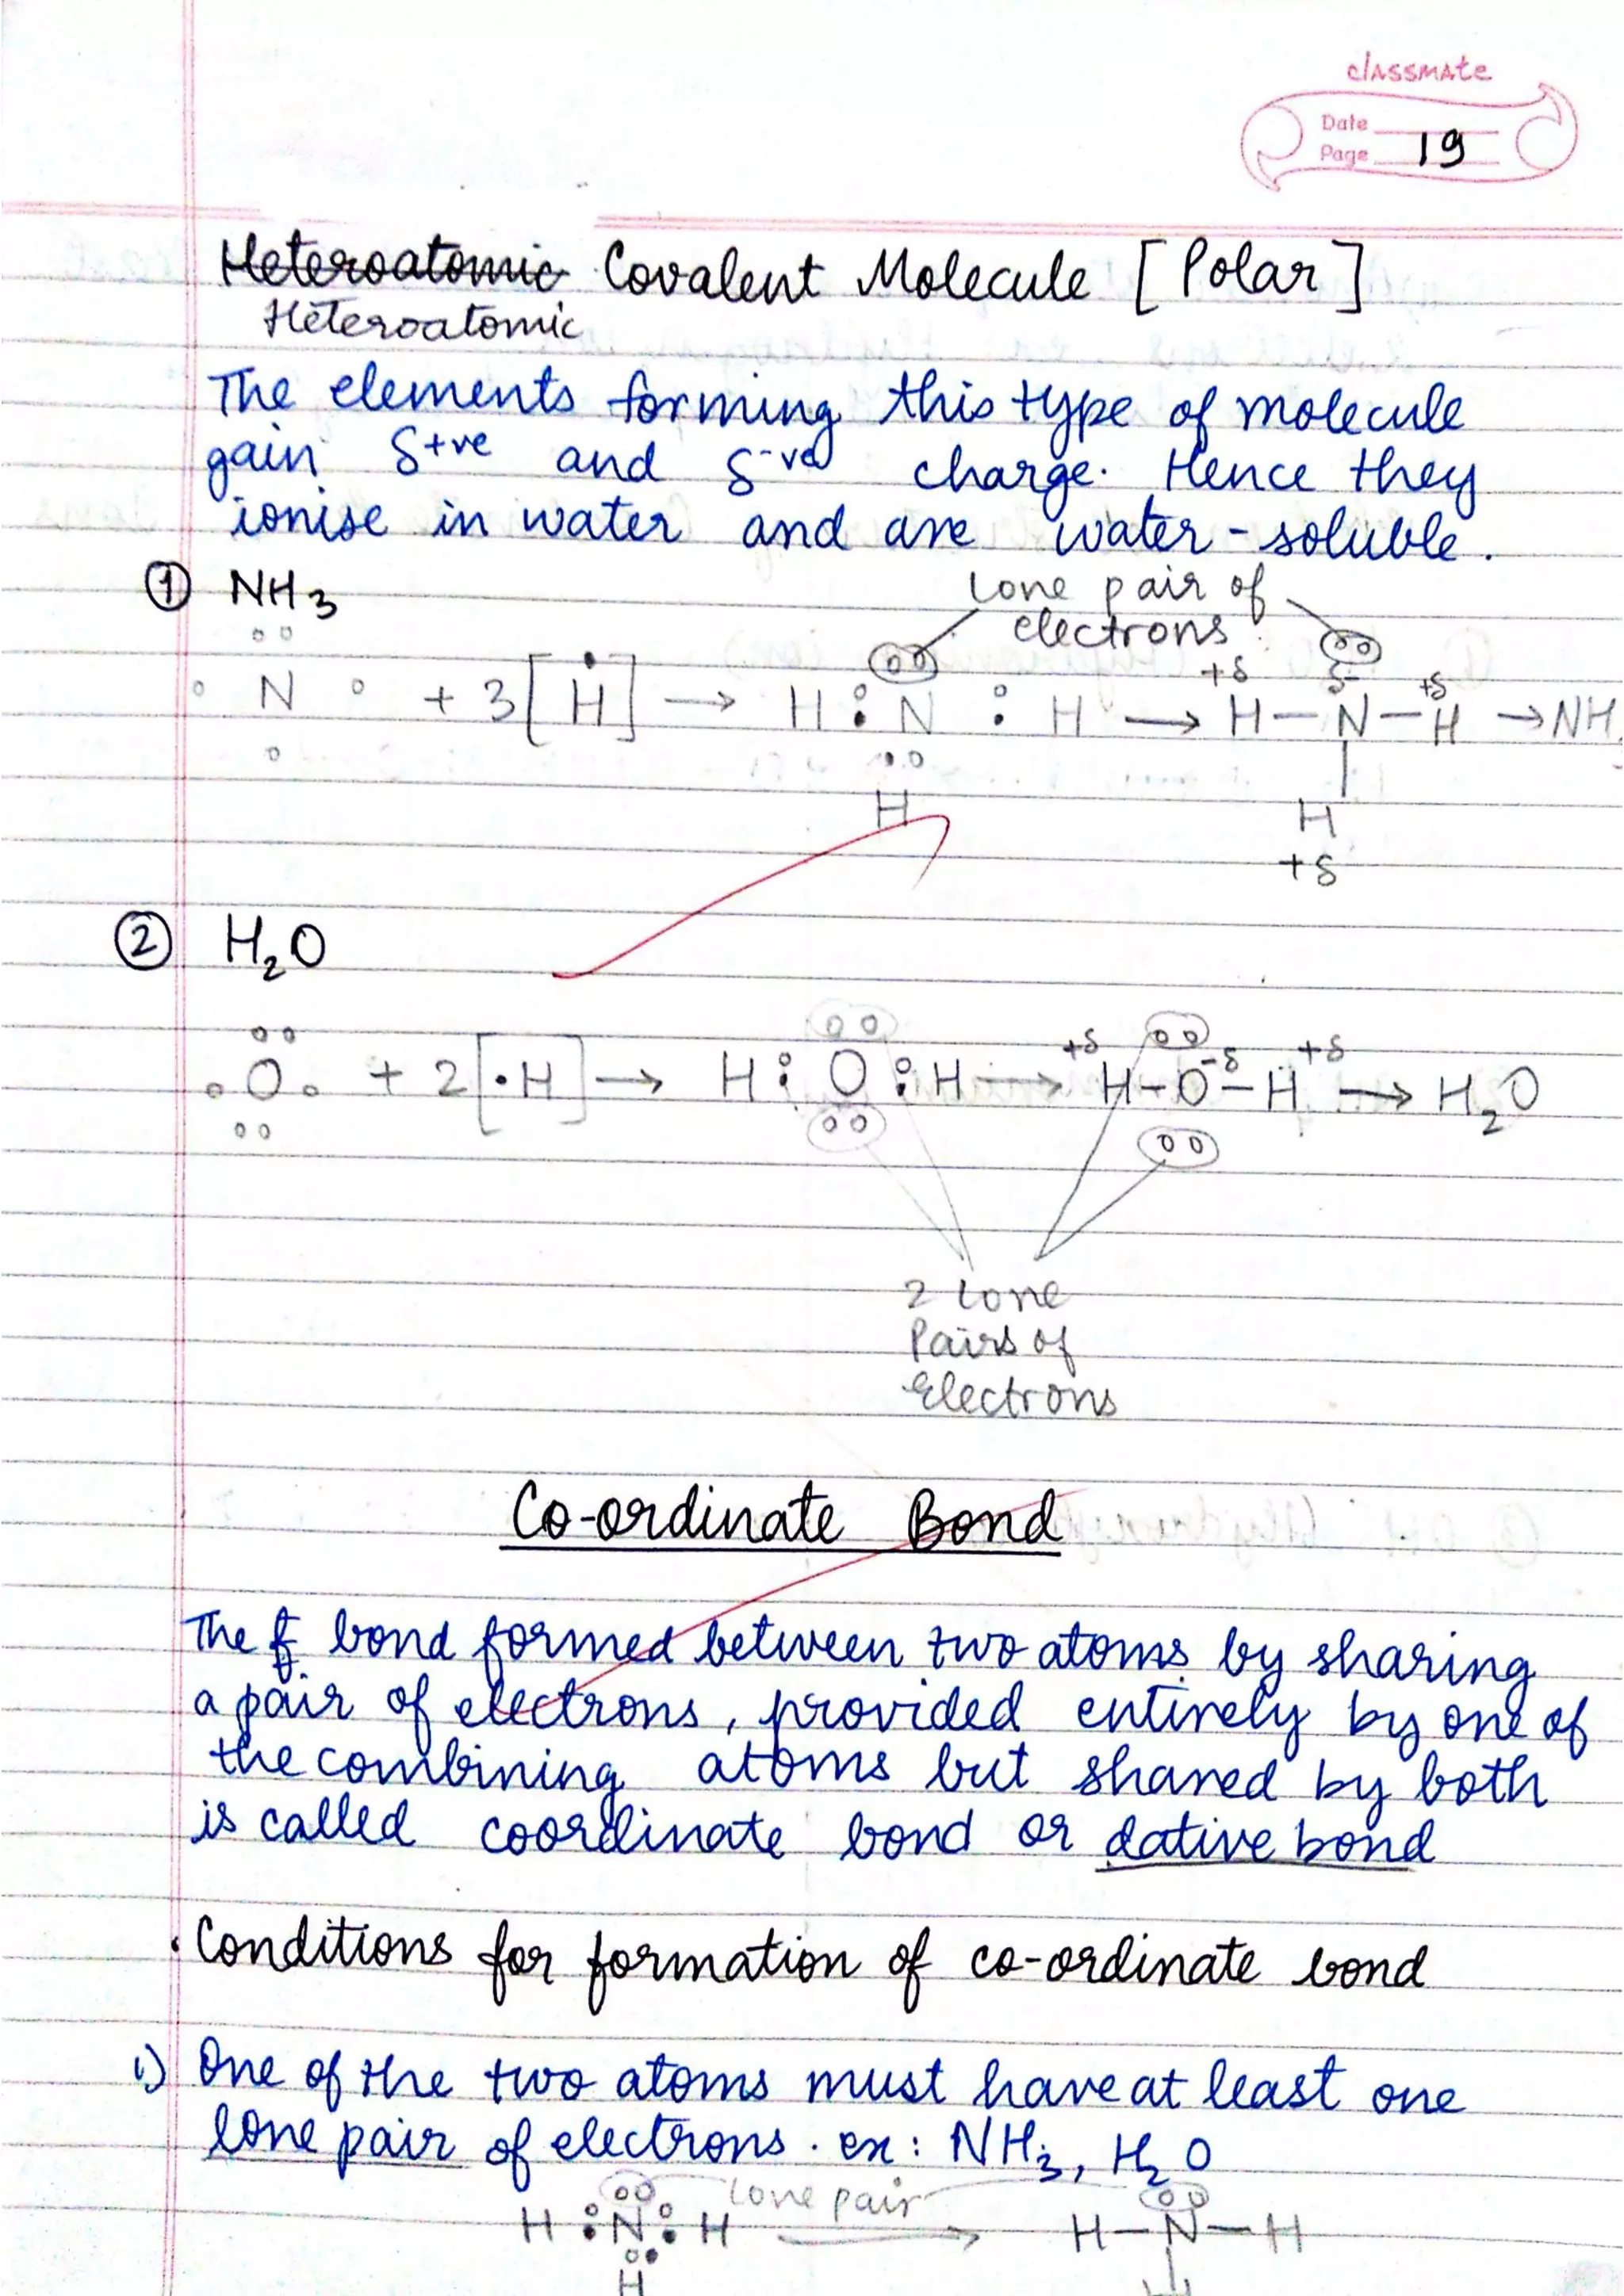 classmate
Date
Page 19
Heteroatomic Covalent Molecule [Polar]
Heteroatomic
The elements forming this type of molecule
gain δ+ve and δ-ve charge. Hence they
ionise in water and are water-soluble.
① NH3
lone pair of
electrons
N + 3[H] → H : N : H → H—N—H → NH
+δ δ- +δ
H H
+δ
② H2O
+δ -δ +δ
O + 2[·H] → H : O : H → H-O-H → H2O
2 lone
Pairs of
Electrons
Co-ordinate Bond
The bond formed between two atoms by sharing
a pair of electrons, provided entirely by one of
the combining atoms but shared by both
is called coordinate bond or dative bond
• Conditions for formation of co-ordinate bond
i) One of the two atoms must have at least one
lone pair of electrons. ex: NH3, H2O
lone pair
H : N : H → H—N—H
H H